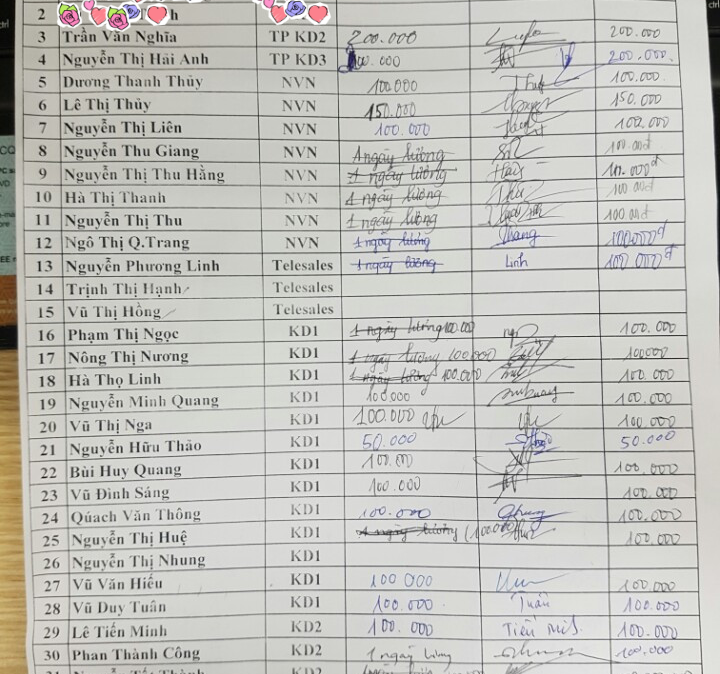 2
3 Trần Văn Nghĩa TP KD2 200.000 200.000
4 Nguyễn Thị Hải Anh TP KD3 200.000
5 Dương Thanh Thủy NVN 100.000 100.000
6 Lê Thị Thủy NVN 150.000 150.000
7 Nguyễn Thị Liên NVN 100.000 100.000
8 Nguyễn Thu Giang NVN 1 ngày lương 100.000đ
9 Nguyễn Thị Thu Hằng NVN 1 ngày lương 100.000đ
10 Hà Thị Thanh NVN 1 ngày lương 100.000đ
11 Nguyễn Thị Thu NVN 1 ngày lương 100.000đ
12 Ngô Thị Q.Trang NVN 1 ngày lương Trang 100.000đ
13 Nguyễn Phương Linh Telesales 1 ngày lương Linh 100.000đ
14 Trịnh Thị Hạnh Telesales
15 Vũ Thị Hồng Telesales
16 Phạm Thị Ngọc KD1 1 ngày lương 100.000 100.000
17 Nông Thị Nương KD1 1 ngày lương 100.000 100000
18 Hà Thọ Linh KD1 1 ngày lương 100.000 100.000
19 Nguyễn Minh Quang KD1 100.000 100.000
20 Vũ Thị Nga KD1 100.000 100.000
21 Nguyễn Hữu Thảo KD1 50.000 50.000
22 Bùi Huy Quang KD1 100.000 100.000
23 Vũ Đình Sáng KD1 100.000 100.000
24 Qúach Văn Thông KD1 100.000 100.000
25 Nguyễn Thị Huệ KD1 1 ngày lương (100.000) 100.000
26 Nguyễn Thị Nhung KD1
27 Vũ Văn Hiếu KD1 100 000 100.000
28 Vũ Duy Tuân KD1 100.000 Tuân 100.000
29 Lê Tiến Minh KD2 100.000 Tiến Minh 100.000
30 Phan Thành Công KD2 1 ngày lương 100.000